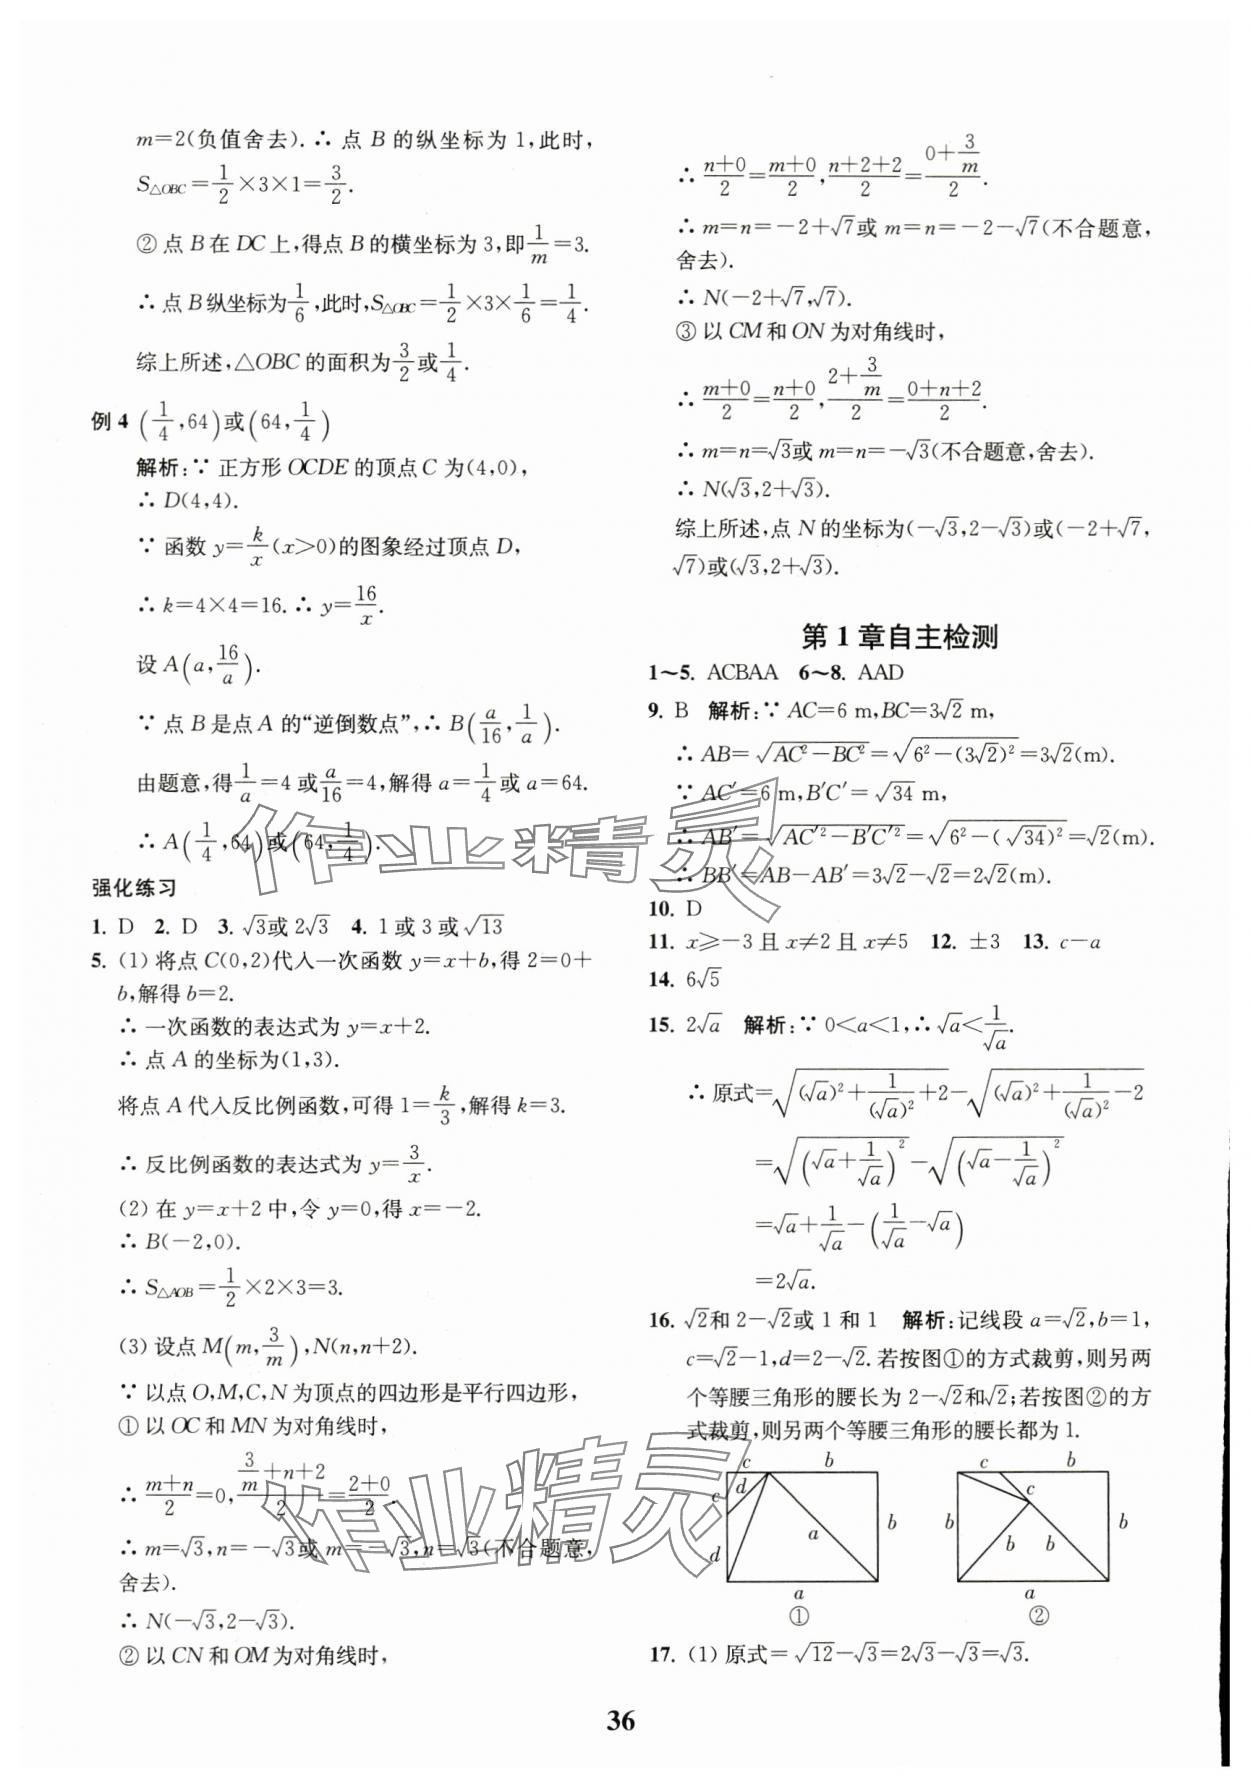 m=2(负值舍去). ∴ 点 B 的纵坐标为 1,此时,
S△OBC=1/2×3×1=3/2.
② 点 B 在 DC 上,得点 B 的横坐标为 3,即1/m=3.
∴ 点 B 纵坐标为1/6,此时,S△OBC=1/2×3×1/6=1/4.
综上所述,△OBC 的面积为3/2或1/4.
例 4 (1/4,64)或(64,1/4)
解析:∵ 正方形 OCDE 的顶点 C 为(4,0),
∴ D(4,4).
∵ 函数 y=k/x(x>0)的图象经过顶点 D,
∴ k=4×4=16. ∴ y=16/x.
设 A(a,16/a).
∵ 点 B 是点 A 的“逆倒数点”,∴ B(a/16,1/a).
由题意,得1/a=4 或a/16=4,解得 a=1/4或 a=64.
∴ A(1/4,64)或(64,1/4).
强化练习
1. D 2. D 3. √3或 2√3 4. 1 或 3 或√13
5. (1) 将点 C(0,2)代入一次函数 y=x+b,得 2=0+
b,解得 b=2.
∴ 一次函数的表达式为 y=x+2.
∴ 点 A 的坐标为(1,3).
将点 A 代入反比例函数,可得 1=k/3,解得 k=3.
∴ 反比例函数的表达式为 y=3/x.
(2) 在 y=x+2 中,令 y=0,得 x=-2.
∴ B(-2,0).
∴ S△AOB=1/2×2×3=3.
(3) 设点 M(m,3/m),N(n,n+2).
∵ 以点 O,M,C,N 为顶点的四边形是平行四边形,
① 以 OC 和 MN 为对角线时,
∴ (m+n)/2=0,(3/m+n+2)/2=(2+0)/2.
∴ m=√3,n=-√3或 m=-√3,n=√3(不合题意,
舍去).
∴ N(-√3,2-√3).
② 以 CN 和 OM 为对角线时,
∴ (n+0)/2=(m+0)/2,(n+2+2)/2=(0+3/m)/2.
∴ m=n=-2+√7或 m=n=-2-√7(不合题意,
舍去).
∴ N(-2+√7,√7).
③ 以 CM 和 ON 为对角线时,
∴ (m+0)/2=(n+0)/2,(2+3/m)/2=(0+n+2)/2.
∴ m=n=√3或 m=n=-√3(不合题意,舍去).
∴ N(√3,2+√3).
综上所述,点 N 的坐标为(-√3,2-√3)或(-2+√7,
√7)或(√3,2+√3).
第 1 章自主检测
1~5. ACBAA 6~8. AAD
9. B 解析:∵ AC=6 m,BC=3√2 m,
∴ AB=√(AC²-BC²)=√(6²-(3√2)²)=3√2(m).
∵ AC′=6 m,B′C′=√34 m,
∴ AB′=√(AC′²-B′C′²)=√(6²-(√34)²)=√2(m).
∴ BB′=AB-AB′=3√2-√2=2√2(m).
10. D
11. x≥-3 且 x≠2 且 x≠5 12. ±3 13. c-a
14. 6√5
15. 2√a 解析:∵ 0<a<1,∴ √a<1/√a.
∴ 原式=√((√a)²+1/(√a)²+2)-√((√a)²+1/(√a)²-2)
=√((√a+1/√a)²)-√((√a-1/√a)²)
=√a+1/√a-(1/√a-√a)
=2√a.
16. √2和 2-√2或 1 和 1 解析:记线段 a=√2,b=1,
c=√2-1,d=2-√2. 若按图①的方式裁剪,则另两
个等腰三角形的腰长为 2-√2和√2;若按图②的方
式裁剪,则另两个等腰三角形的腰长都为 1.
c b
c d
d a b
a
①
c b
c
b b b
a
②
17. (1) 原式=√12-√3=2√3-√3=√3.
36
作业精灵
作业精灵